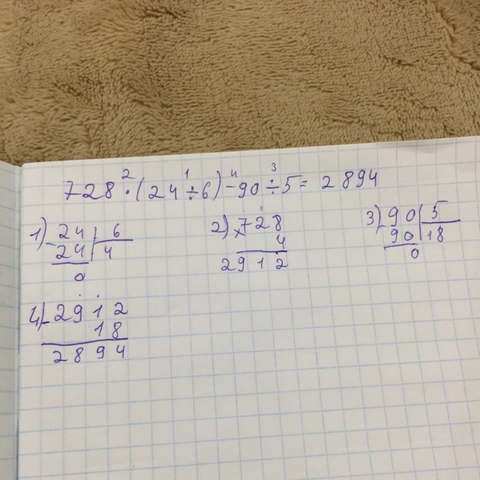 728 · (24 ÷ 6) - 90 ÷ 5 = 2894
2 1 4 3
1) 24 | 6
- 24 | 4
0
2) 728
× 4
2912
3) 90 | 5
- 90 | 18
0
4) - 2912
18
2894